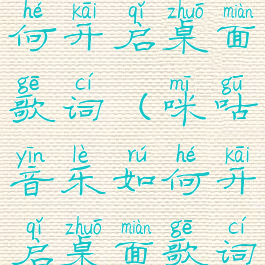 hé kāi qǐ zhuō miàn
何开启桌面
gē cí mī gū
歌词（咪咕
yīn lè rú hé kāi
音乐如何开
qǐ zhuō miàn gē cí
启桌面歌词